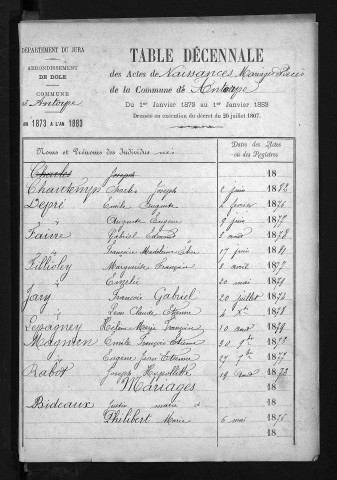 DÉPARTEMENT DU JURA
ARRONDISSEMENT
DE DOLE
COMMUNE
d'Antorpe
DE 1873 A L'AN 1883
TABLE DÉCENNALE
des Actes de Naissances Mariages Décès
de la Commune de Antorpe
Du 1er Janvier 1873 au 1er Janvier 1883
Dressée en exécution du décret du 20 juillet 1807.
Noms et Prénoms des Individus nés
Dates des Actes
ou des Registres
Charles Joseph 18
Chautemps Charles Joseph 2 juin 1882
Depri Emile Auguste 2 février 1876
" Auguste Eugène 9 juin 1877
Faivre Gabriel Edmond 8 aout 1878
" Françoise Madeleine 17 juin 1881
Fillioley Marguerite Françoise 8 avril 1877
" Enzélie 20 mai 1879
Jary François Gabriel 20 juillet 1874
" Léon Claude Etienne 4 Xbre 1878
Lepagney Hélène Marie Françoise 10 aout 1879
Magnien Emile François Etienne 30 1873
" Eugène Jean Etienne 27 1877
Rabot Joseph Hyppolithe 18 aout 1873
Mariages
Bideaux Justin marie & 18
Philibert Marie 6 mai 1876
18